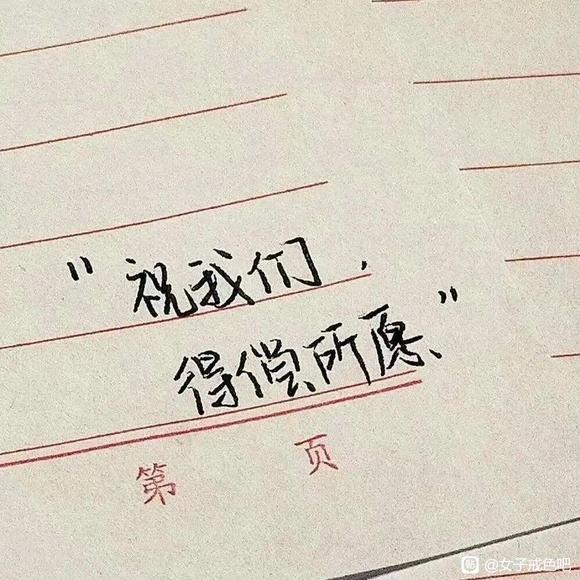 “祝我们，
得偿所愿”
第 页
@女子戒色吧